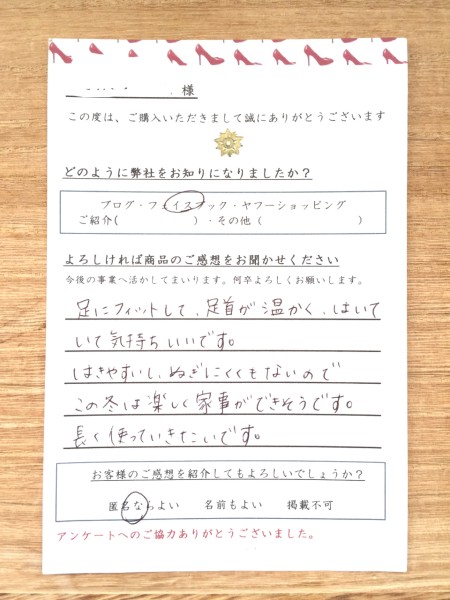 様
この度は、ご購入いただきまして誠にありがとうございます
どのように弊社をお知りになりましたか？
ブログ・フェイスブック・ヤフーショッピング
ご紹介(　　　　　　　)・その他(　　　　　　　)
よろしければ商品のご感想をお聞かせください
今後の事業へ活かしてまいります。何卒よろしくお願いします。
足にフィットして、足首が温かく、はいて
いて気持ちいいです。
はきやすいし、ぬぎにくくもないので
この冬は楽しく家事ができそうです。
長く使っていきたいです。
お客様のご感想を紹介してもよろしいでしょうか？
匿名ならよい　名前もよい　掲載不可
アンケートへのご協力ありがとうございました。